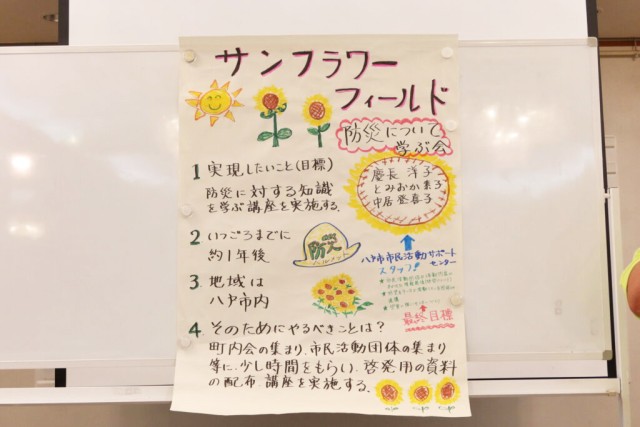 サンフラワー
フィールド
防災について
学ぶ会
1 実現したいこと(目標)
防災に対する知識
を学ぶ講座を実施する.
慶長 洋子
とみおか素子
中居 登喜子
2 いつごろまでに
約1年後
防災
ヘルメット
八戸市市民活動サポート
センター
スタッフ!
3 地域は
八戸市内
最終目標
4 そのためにやるべきことは?
町内会の集まり、市民活動団体の集まり
等に、少し時間をもらい、啓発用の資料
の配布、講座を実施する.